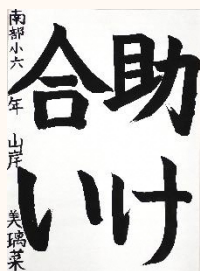 助け
合い
南部小六年 山岸美璃菜